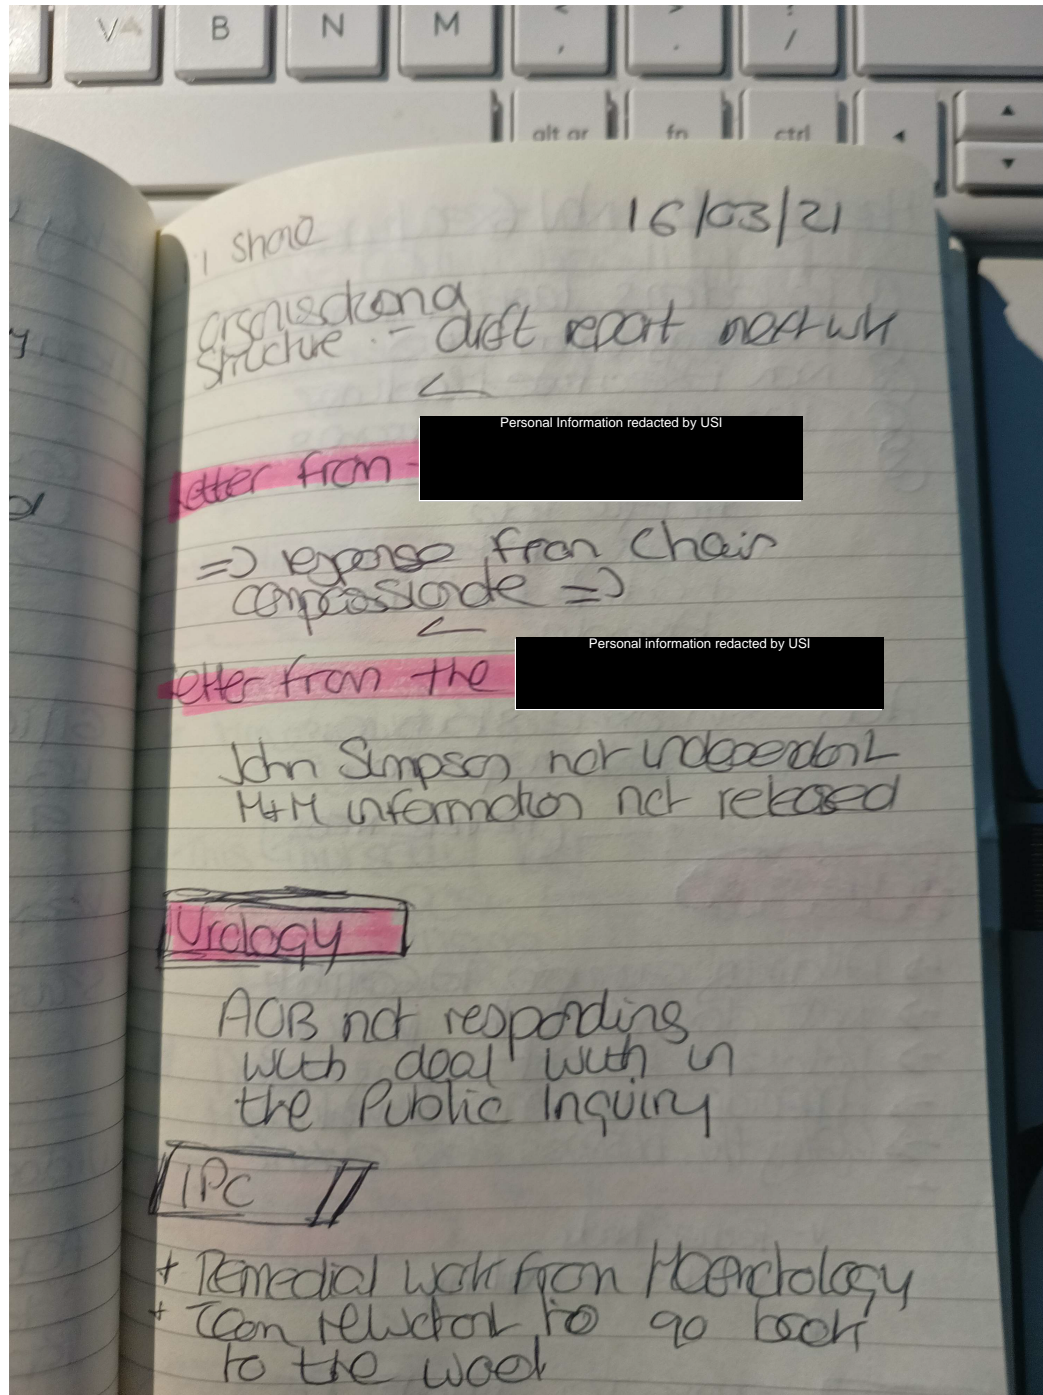 V B N M < , > . ? /
alt gr fn ctrl
16/03/21
organisational
structure - draft report next wk
Personal Information redacted by USI
letter from -
=> response from Chair
compassionate =>
Personal information redacted by USI
letter from the
John Simpson not independent
M+M information not released
Urology
AOB not responding
with deal with in
the Public Inquiry
IPC
+ Remedial work from Haematology
+ Team reluctant to go back
to the